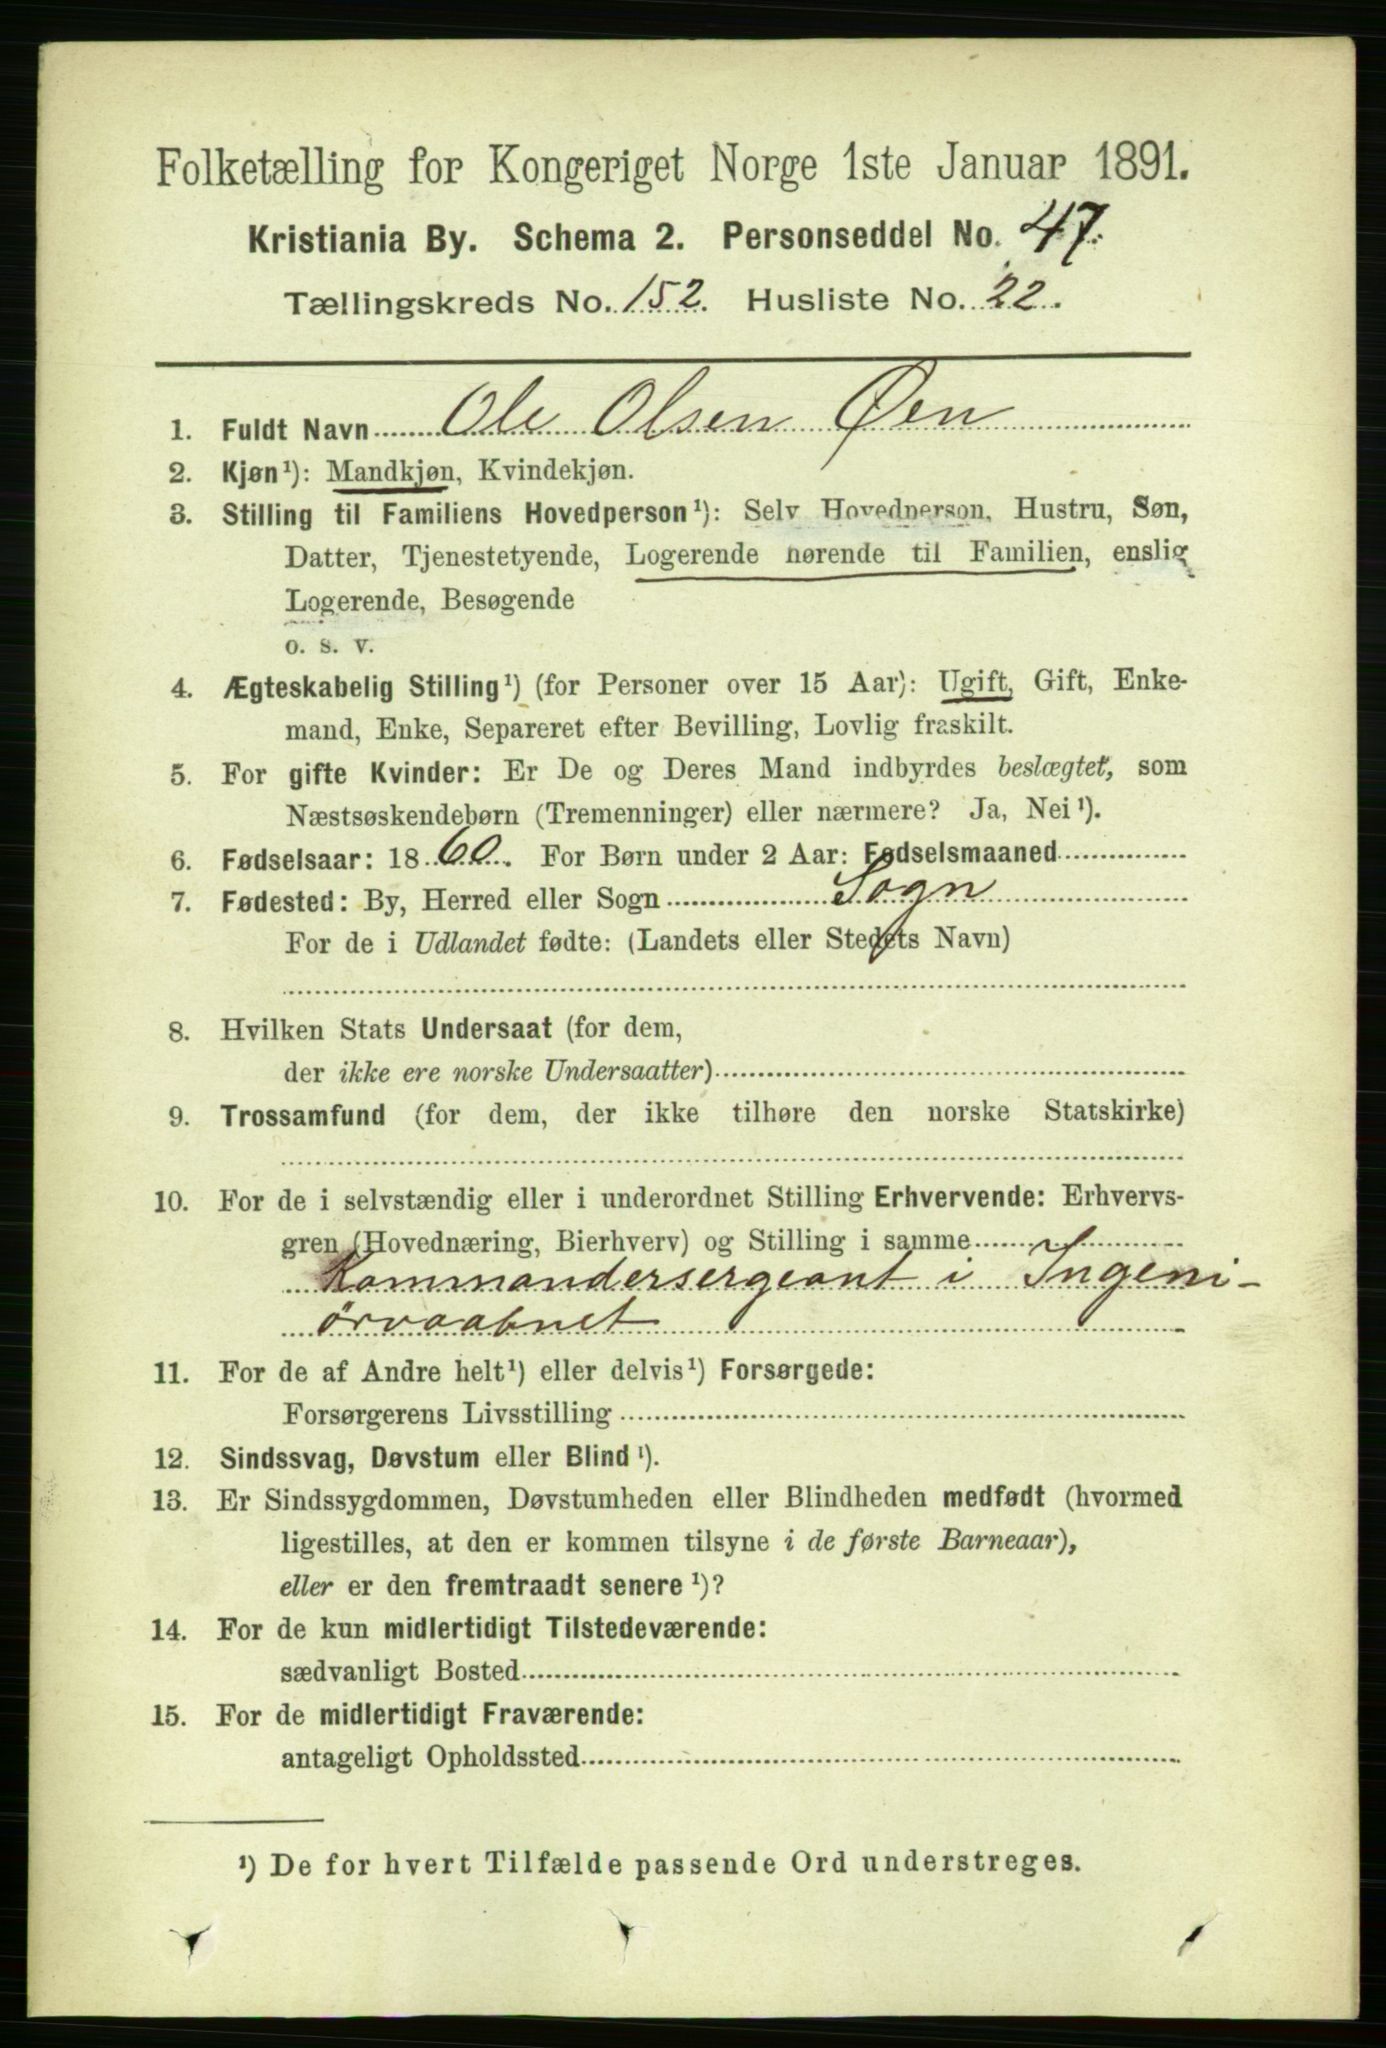 Folketælling for Kongeriget Norge 1ste Januar 1891.
Kristiania By. Schema 2. Personseddel No. 47.
Tællingskreds No. 152. Husliste No. 22.
1. Fuldt Navn Ole Olsen Øen
2. Kjøn¹): Mandkjøn, Kvindekjøn.
3. Stilling til Familiens Hovedperson¹): Selv Hovedperson, Hustru, Søn,
Datter, Tjenestetyende, Logerende hørende til Familien, enslig
Logerende, Besøgende
o. s. v.
4. Ægteskabelig Stilling¹) (for Personer over 15 Aar): Ugift, Gift, Enke-
mand, Enke, Separeret efter Bevilling, Lovlig fraskilt.
5. For gifte Kvinder: Er De og Deres Mand indbyrdes beslægtet, som
Næstsøskendebørn (Tremenninger) eller nærmere? Ja, Nei¹).
6. Fødselsaar: 1860. For Børn under 2 Aar: Fødselsmaaned
7. Fødested: By, Herred eller Sogn Sogn
For de i Udlandet fødte: (Landets eller Stedets Navn)
8. Hvilken Stats Undersaat (for dem,
der ikke ere norske Undersaatter)
9. Trossamfund (for dem, der ikke tilhøre den norske Statskirke)
10. For de i selvstændig eller i underordnet Stilling Erhvervende: Erhvervs-
gren (Hovednæring, Bierhverv) og Stilling i samme
Kommandersergeant i Ingeni-
ørvaabnet
11. For de af Andre helt¹) eller delvis¹) Forsørgede:
Forsørgerens Livsstilling
12. Sindssvag, Døvstum eller Blind¹).
13. Er Sindssygdommen, Døvstumheden eller Blindheden medfødt (hvormed
ligestilles, at den er kommen tilsyne i de første Barneaar),
eller er den fremtraadt senere¹)?
14. For de kun midlertidigt Tilstedeværende:
sædvanligt Bosted
15. For de midlertidigt Fraværende:
antageligt Opholdssted
¹) De for hvert Tilfælde passende Ord understreges.